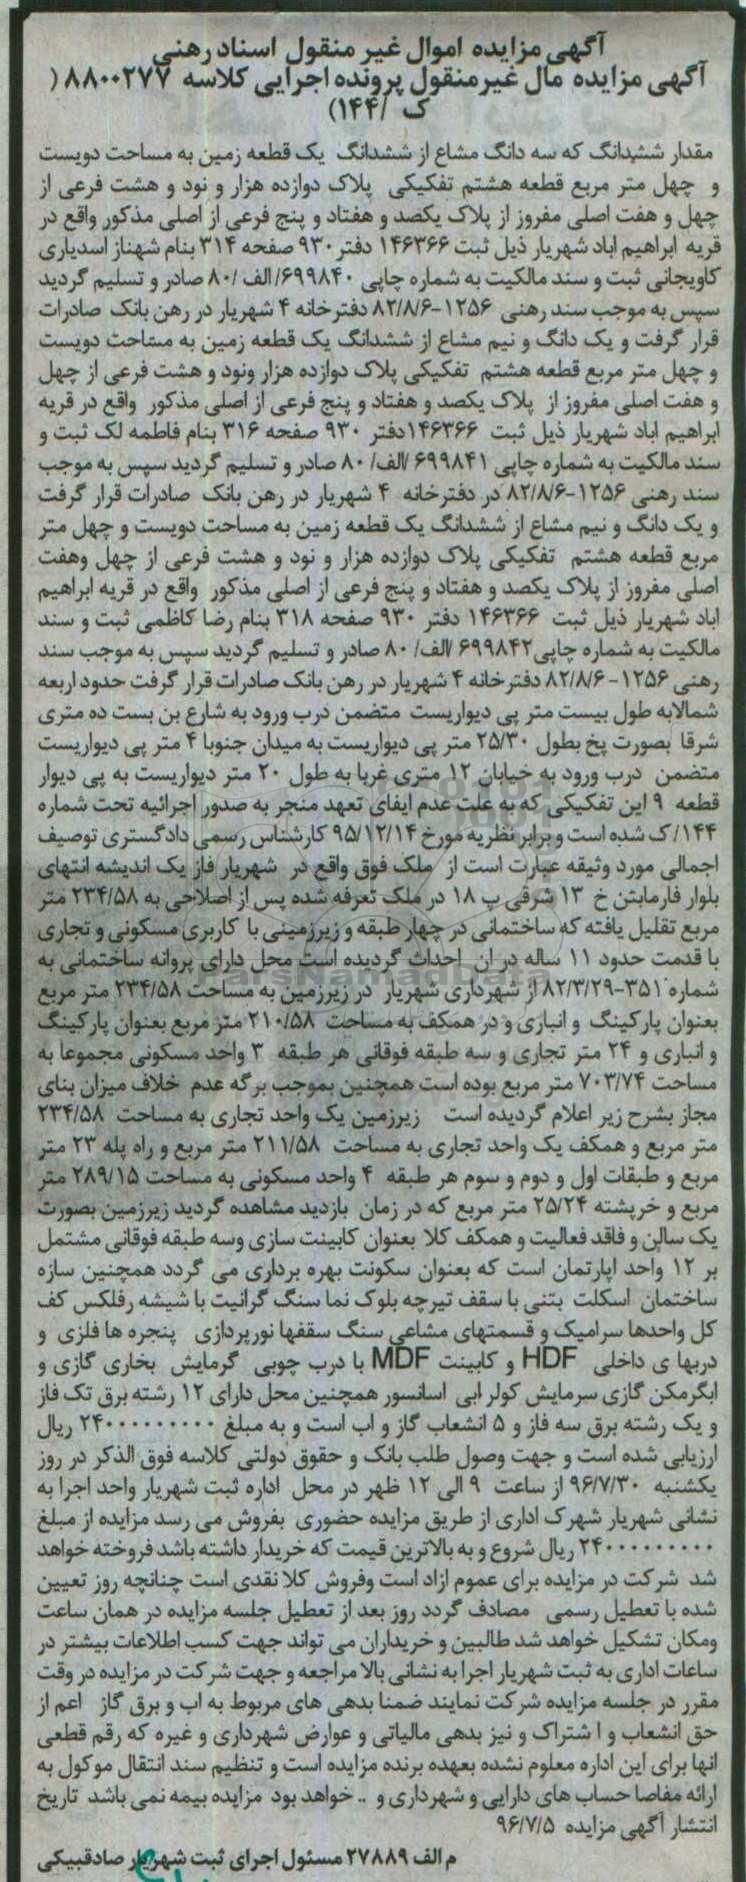 آگهی مزایده اموال غیر منقول اسناد رهنی
آگهی مزایده مال غیرمنقول پرونده اجرایی کلاسه ۸۸۰۰۲۷۷ (
ک /۱۴۴)
مقدار ششدانگ که سه دانگ مشاع از ششدانگ یک قطعه زمین به مساحت دویست
و چهل متر مربع قطعه هشتم تفکیکی پلاک دوازده هزار و نود و هشت فرعی از
چهل و هفت اصلی مفروز از پلاک یکصد و هفتاد و پنج فرعی از اصلی مذکور واقع در
قریه ابراهیم اباد شهریار ذیل ثبت ۱۴۶۳۶۶ دفتر ۹۳۰ صفحه ۳۱۴ بنام شهناز اسدیاری
کاویجانی ثبت و سند مالکیت به شماره چاپی ۶۹۹۸۴۰/الف /۸۰ صادر و تسلیم گردید
سپس به موجب سند رهنی ۱۲۵۶-۸۲/۸/۶ دفترخانه ۴ شهریار در رهن بانک صادرات
قرار گرفت و یک دانگ و نیم مشاع از ششدانگ یک قطعه زمین به مساحت دویست
و چهل متر مربع قطعه هشتم تفکیکی پلاک دوازده هزار ونود و هشت فرعی از چهل
و هفت اصلی مفروز از پلاک یکصد و هفتاد و پنج فرعی از اصلی مذکور واقع در قریه
ابراهیم اباد شهریار ذیل ثبت ۱۴۶۳۶۶دفتر ۹۳۰ صفحه ۳۱۶ بنام فاطمه لک ثبت و
سند مالکیت به شماره چاپی ۶۹۹۸۴۱ /الف/ ۸۰ صادر و تسلیم گردید سپس به موجب
سند رهنی ۱۲۵۶-۸۲/۸/۶ در دفترخانه ۴ شهریار در رهن بانک صادرات قرار گرفت
و یک دانگ و نیم مشاع از ششدانگ یک قطعه زمین به مساحت دویست و چهل متر
مربع قطعه هشتم تفکیکی پلاک دوازده هزار و نود و هشت فرعی از چهل وهفت
اصلی مفروز از پلاک یکصد و هفتاد و پنج فرعی از اصلی مذکور واقع در قریه ابراهیم
اباد شهریار ذیل ثبت ۱۴۶۳۶۶ دفتر ۹۳۰ صفحه ۳۱۸ بنام رضا کاظمی ثبت و سند
مالکیت به شماره چاپی۶۹۹۸۴۲ /الف/ ۸۰ صادر و تسلیم گردید سپس به موجب سند
رهنی ۱۲۵۶- ۸۲/۸/۶ دفترخانه ۴ شهریار در رهن بانک صادرات قرار گرفت حدود اربعه
شمالابه طول بیست متر پی دیواریست متضمن درب ورود به شارع بن بست ده متری
شرقا بصورت پخ بطول ۲۵/۳۰ متر پی دیواریست به میدان جنوبا ۴ متر پی دیواریست
متضمن درب ورود به خیابان ۱۲ متری غربا به طول ۲۰ متر دیواریست به پی دیوار
قطعه ۹ این تفکیکی که به علت عدم ایفای تعهد منجر به صدور اجرائیه تحت شماره
۱۴۴/ ک شده است و برابر نظریه مورخ ۹۵/۱۲/۱۴ کارشناس رسمی دادگستری توصیف
اجمالی مورد وثیقه عبارت است از ملک فوق واقع در شهریار فاز یک اندیشه انتهای
بلوار فارمابتن خ ۱۳ شرقی پ ۱۸ در ملک تعرفه شده پس از اصلاحی به ۲۳۴/۵۸ متر
مربع تقلیل یافته که ساختمانی در چهار طبقه و زیرزمینی با کاربری مسکونی و تجاری
با قدمت حدود ۱۱ ساله در ان احداث گردیده است محل دارای پروانه ساختمانی به
شماره ۳۵۱-۸۲/۳/۲۹ از شهرداری شهریار در زیرزمین به مساحت ۲۳۴/۵۸ متر مربع
بعنوان پارکینگ و انباری و در همکف به مساحت ۲۱۰/۵۸ متر مربع بعنوان پارکینگ
و انباری و ۲۴ متر تجاری و سه طبقه فوقانی هر طبقه ۳ واحد مسکونی مجموعا به
مساحت ۷۰۳/۷۴ متر مربع بوده است همچنین بموجب برگه عدم خلاف میزان بنای
مجاز بشرح زیر اعلام گردیده است زیرزمین یک واحد تجاری به مساحت ۲۳۴/۵۸
متر مربع و همکف یک واحد تجاری به مساحت ۲۱۱/۵۸ متر مربع و راه پله ۲۳ متر
مربع و طبقات اول و دوم و سوم هر طبقه ۴ واحد مسکونی به مساحت ۲۸۹/۱۵ متر
مربع و خرپشته ۲۵/۲۴ متر مربع که در زمان بازدید مشاهده گردید زیرزمین بصورت
یک سالن و فاقد فعالیت و همکف کلا بعنوان کابینت سازی وسه طبقه فوقانی مشتمل
بر ۱۲ واحد اپارتمان است که بعنوان سکونت بهره برداری می گردد همچنین سازه
ساختمان اسکلت بتنی با سقف تیرچه بلوک نما سنگ گرانیت با شیشه رفلکس کف
کل واحدها سرامیک و قسمتهای مشاعی سنگ سقفها نورپردازی پنجره ها فلزی و
دربها ی داخلی HDF و کابینت MDF با درب چوبی گرمایش بخاری گازی و
ابگرمکن گازی سرمایش کولر ابی اسانسور همچنین محل دارای ۱۲ رشته برق تک فاز
و یک رشته برق سه فاز و ۵ انشعاب گاز و اب است و به مبلغ ۲۴۰۰۰۰۰۰۰۰۰ ریال
ارزیابی شده است و جهت وصول طلب بانک و حقوق دولتی کلاسه فوق الذکر در روز
یکشنبه ۹۶/۷/۳۰ از ساعت ۹ الی ۱۲ ظهر در محل اداره ثبت شهریار واحد اجرا به
نشانی شهریار شهرک اداری از طریق مزایده حضوری بفروش می رسد مزایده از مبلغ
۲۴۰۰۰۰۰۰۰۰۰ ریال شروع و به بالاترین قیمت که خریدار داشته باشد فروخته خواهد
شد شرکت در مزایده برای عموم ازاد است وفروش کلا نقدی است چنانچه روز تعیین
شده با تعطیل رسمی مصادف گردد روز بعد از تعطیل جلسه مزایده در همان ساعت
ومکان تشکیل خواهد شد طالبین و خریداران می تواند جهت کسب اطلاعات بیشتر در
ساعات اداری به ثبت شهریار اجرا به نشانی بالا مراجعه و جهت شرکت در مزایده در وقت
مقرر در جلسه مزایده شرکت نمایند ضمنا بدهی های مربوط به اب و برق گاز اعم از
حق انشعاب و ا شتراک و نیز بدهی مالیاتی و عوارض شهرداری و غیره که رقم قطعی
انها برای این اداره معلوم نشده بعهده برنده مزایده است و تنظیم سند انتقال موکول به
ارائه مفاصا حساب های دارایی و شهرداری و .. خواهد بود مزایده بیمه نمی باشد تاریخ
انتشار آگهی مزایده ۹۶/۷/۵
م الف ۲۷۸۸۹ مسئول اجرای ثبت شهریار صادقبیکی
ParsNamadData